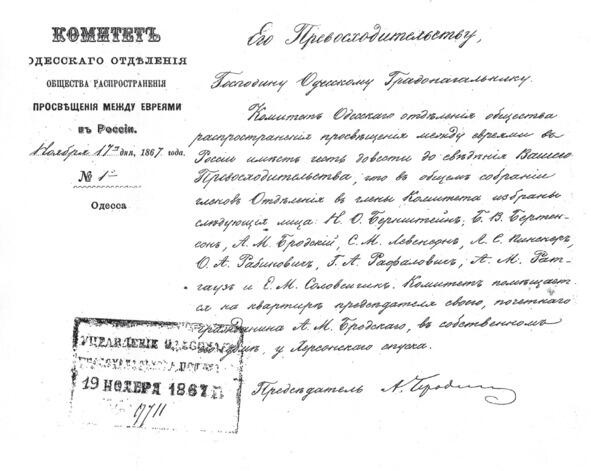 КОМИТЕТЪ
ОДЕССКАГО ОТДѢЛЕНІЯ
ОБЩЕСТВА РАСПРОСТРАНЕНІЯ
ПРОСВѢЩЕНІЯ МЕЖДУ ЕВРЕЯМИ
въ Россіи.
Ноября 17го дня, 1867 года.
№ 1
Одесса
Его Превосходительству,
Господину Одесскому Градоначальнику.
Комитетъ Одесскаго отдѣленія общества
распространенія просвѣщенія между евреями въ
Россіи имѣетъ честь довести до свѣдѣнія Вашего
Превосходительства, что въ общемъ собраніи
членовъ Отдѣленія въ члены Комитета избраны
слѣдующія лица: Н. О. Бернштейнъ, Б. В. Бертен-
сонъ, А. М. Бродскій, С. М. Левенсонъ, Л. С. Пинскеръ,
О. А. Рабиновичъ, Г. А. Рафаловичъ, А. М. Рат-
гаузъ и Е. М. Соловейчикъ. Комитетъ помѣщает-
ся на квартирѣ предсѣдателя своего, почетнаго
гражданина А. М. Бродскаго, въ собственномъ
домѣ, у Херсонскаго спуска.
Предсѣдатель А. Бродскій
УПРАВЛЕНІЕ ОДЕССКАГО
19 НОЯБРЯ 1867
9711